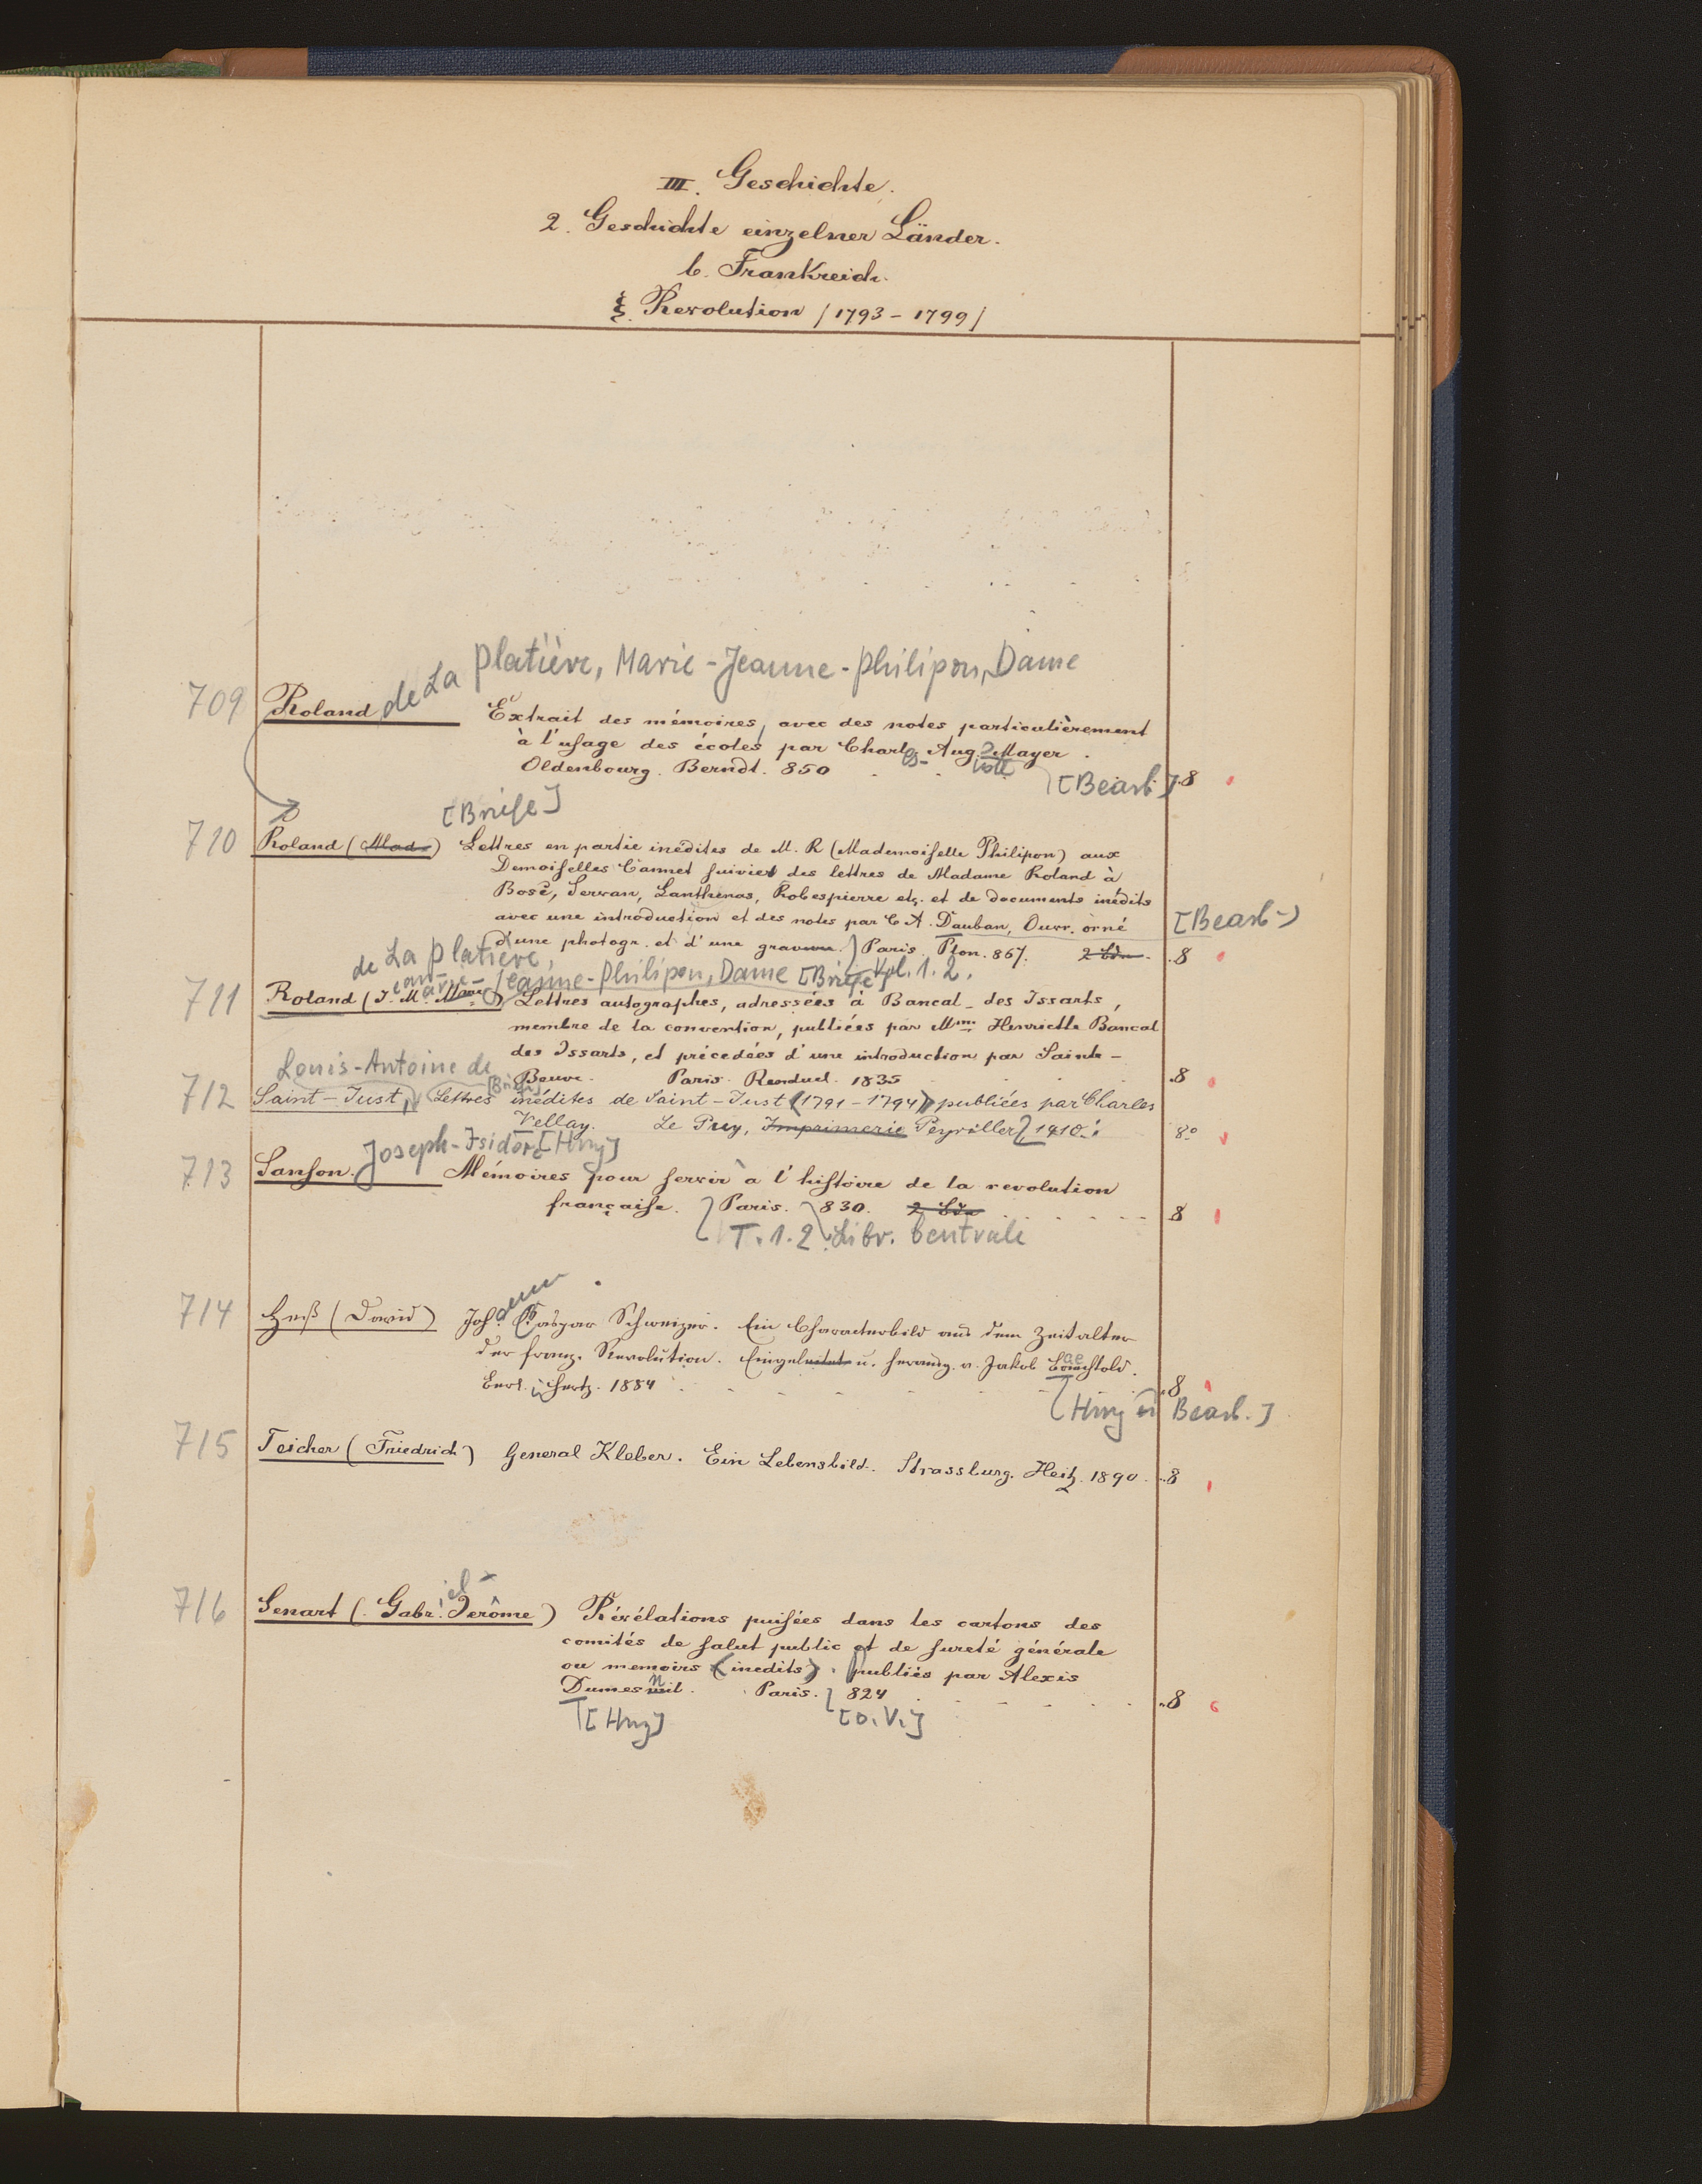 III. Geschichte.
2. Geschichte einzelner Länder.
b. Frankreich.
ξ. Revolution /1793-1799/
709 Roland de La Platière, Marie-Jeanne-Philipon, Dame
Extrait des mémoires, avec des notes particulièrement
à l'usage des écoles par Charles Aug. Mayer.
Oldenbourg. Berndt. 850 [Bearb.] 8
[Briefe]
710 Roland (Mad.) Lettres en partie inédites de M. R (Mademoiselle Philipon) aux
Demoiselles Cannet suivies des lettres de Madame Roland à
Bosc, Servan, Lanthenas, Robespierre etc. et de documents inédits
avec une introduction et des notes par C A. Dauban, Ouvr. orné [Bearb.]
d'une photogr. et d'une gravure. Paris. Plon. 867. 2 Bde. 8
Vol. 1. 2.
de La Platière, Jeanne-Philipon, Dame [Briefe]
711 Roland (J. M. ) Lettres autographes, adressées à Bancal-des Issarts,
membre de la convention, publiées par Mme Henriette Bancal
des Issarts, et précedées d'une introduction par Sainte-
Beuve. Paris. Renduel. 1835 8
Louis-Antoine de [Briefe]
712 Saint-Just, Lettres inédites de Saint-Just (1791-1794) publiées par Charles
Vellay. Le Puy, Imprimerie Peyriller 1910. 8°
Joseph-Isidore [Hrsg]
713 Sanson. Mémoires pour servir à l'histoire de la revolution
française. Paris. 830. 2 Bde 8
T. 1. 2 Libr. Centrale
714 Heß (David) Johann Caspar Schweizer. Ein Charakterbild aus dem Zeitalter
der franz. Revolution. Eingeleitet u. herausg. v. Jakob Baechtold.
Berl. Hertz. 1884 8
[Hrsg Bearb.]
715 Teicher (Friedrich) General Kleber. Ein Lebensbild. Strassburg. Heitz. 1890. 8
716 Senart (Gabriel-Jerôme) Révélations puisées dans les cartons des
comités de salut public et de sureté générale
ou memoirs (inedits). publiés par Alexis
Dumesnil. Paris. 824 8
[Hrsg] [o. V.]